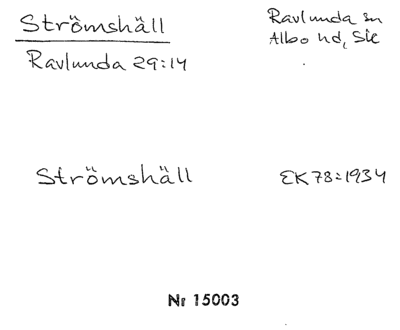 Strömshäll
Ravlunda sn
Albo hd, Sk
Ravlunda 29:14
Strömshäll
EK 78:1934
Nr 15003